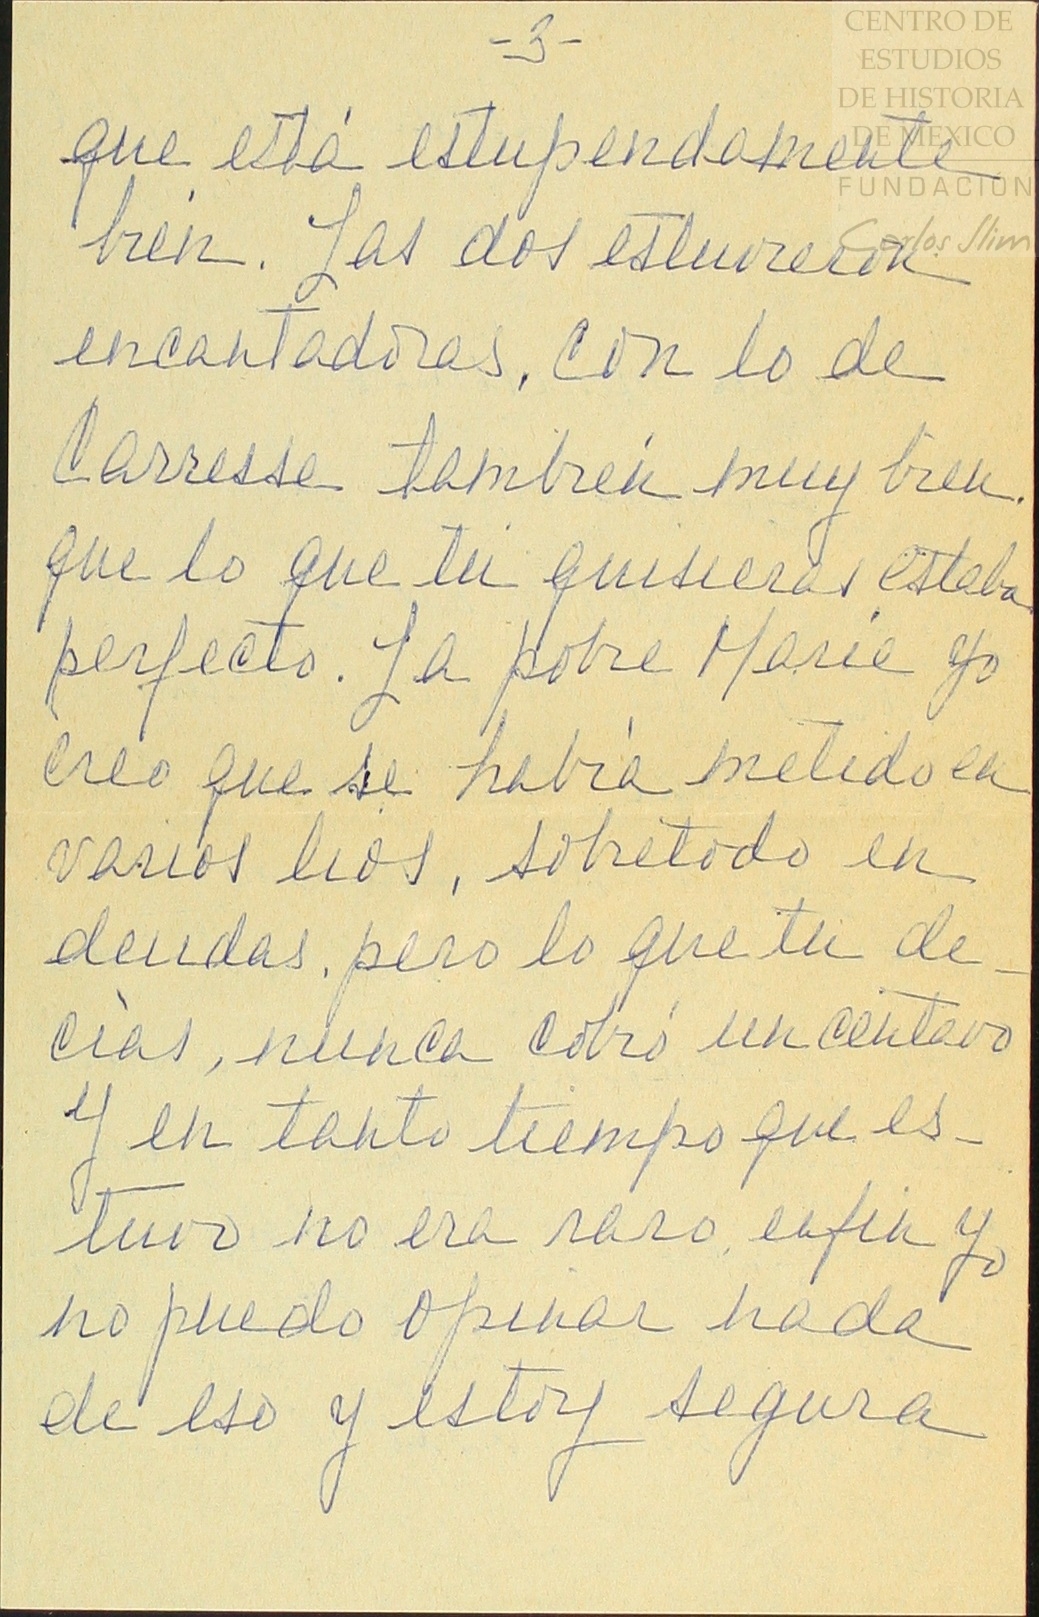 -3-
CENTRO DE
ESTUDIOS
DE HISTORIA
DE MÉXICO
FUNDACIÓN
Carlos Slim
que está estupendamente
bién. Las dos estuvieron
encantadoras, con lo de
Carresse tambień muy bien.
que lo que tú quisieras estaba
perfecto. La pobre Marie yo
creo que se había metido en
varios lios, sobretodo en
deudas, pero lo que tú de-
cías, nunca cobró un centavo
y en tanto tiempo que es-
tuvo no era raro, enfin yo
no puedo opinar nada
de eso y estoy segura